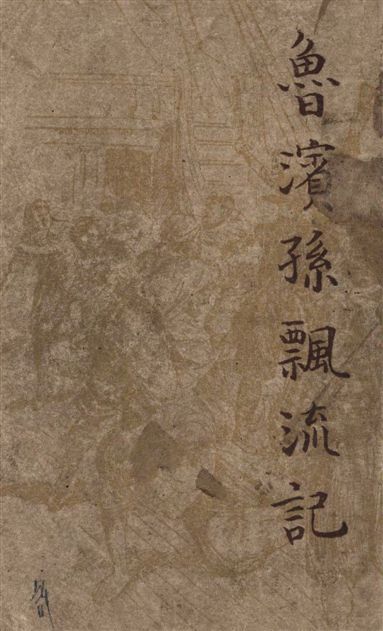 魯濱孫飄流記